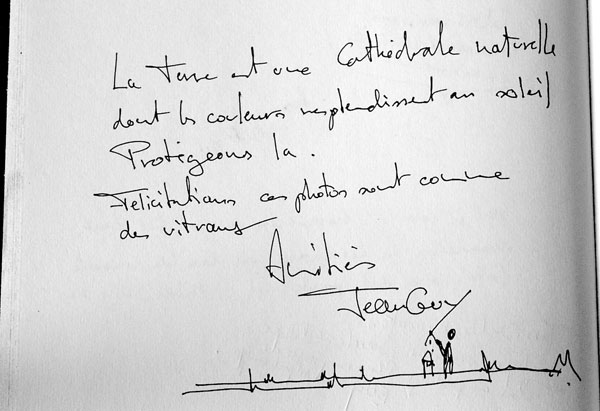 La Terre est une Cathédrale naturelle
dont les couleurs resplendissent au soleil
Protégeons la.
Félicitations ces photos sont comme
des vitraux
Amitiés